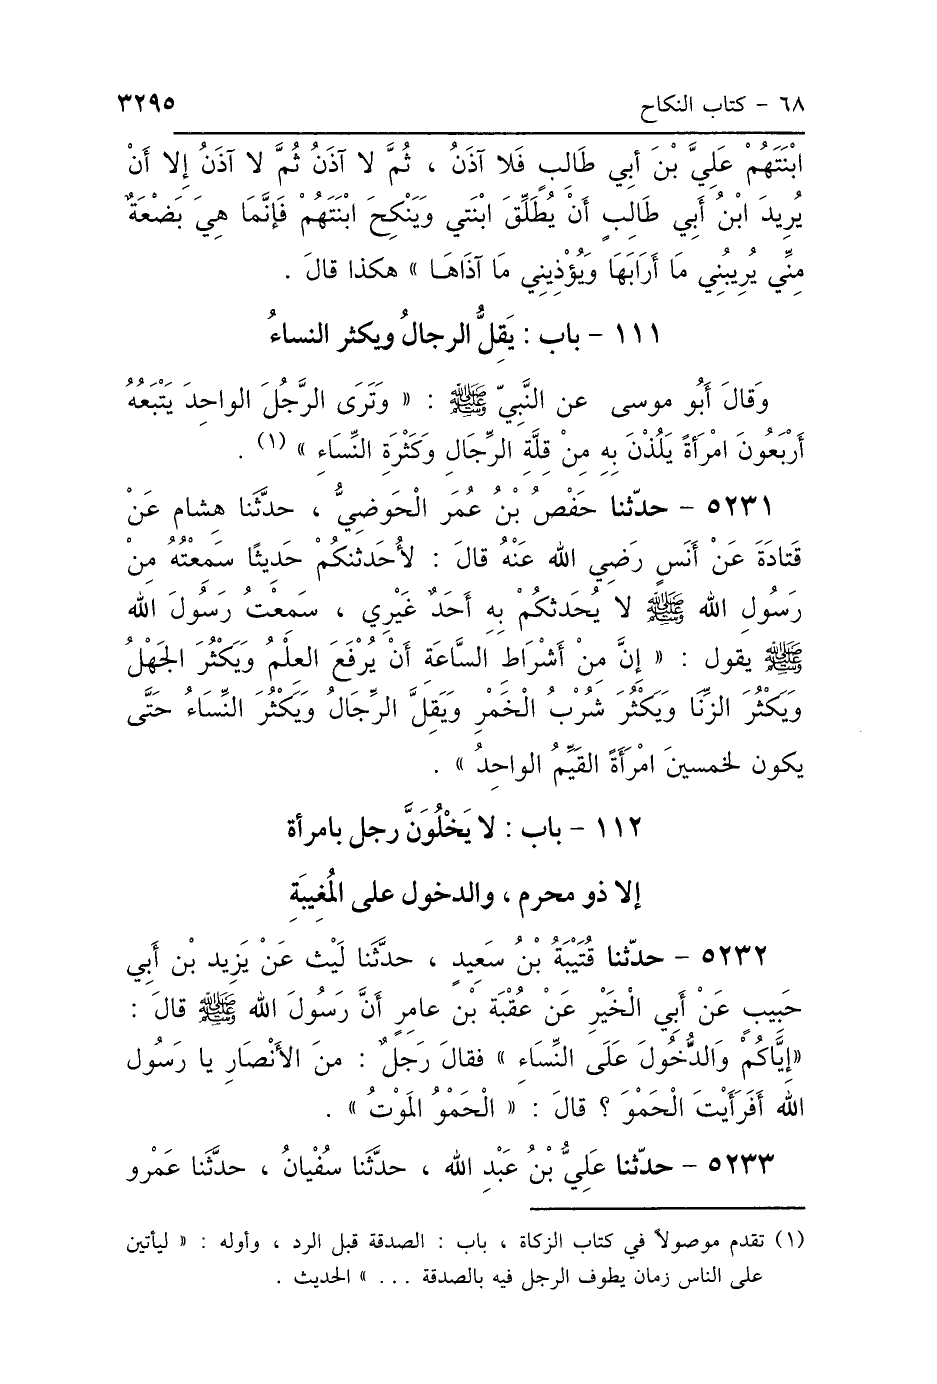 ٦٨ - كتاب النكاح ٣٢٩٥
ابْنَتَهُمْ عَلِيَّ بْنَ أبي طَالِبٍ فَلا آذَنُ ، ثُمَّ لا آذَنُ ثُمَّ لا آذَنُ إلا أَنْ
يُرِيدَ ابْنُ أَبِي طَالِبٍ أَنْ يُطَلِّقَ ابْنَتي وَيَنْكِحَ ابْنَتَهُمْ فَإنَّمَا هِيَ بَضْعَةٌ
مِنِّي يُرِيبُنِي مَا أَرَابَهَا وَيُؤْذِيني مَا آذَاهَا » هكذا قالَ .
١١١ - باب : يَقِلُّ الرجالُ ويكثر النساءُ
وَقالَ أَبُو موسى عن النَّبِيّ ﷺ : « وَتَرَى الرَّجُلَ الواحِدَ يَتْبَعُهُ
أَرْبَعُونَ امْرَأَةً يَلُذْنَ بِهِ مِنْ قِلَّةِ الرِّجَالِ وَكَثْرَةِ النِّسَاءِ » (١) .
٥٢٣١ - حدّثنا حَفْصُ بْنُ عُمَرَ الْحَوضِيُّ ، حدَّثَنا هِشام عَنْ
قَتادَةَ عَنْ أَنَسٍ رَضِي الله عَنْهُ قالَ : لأُحَدثنكُمْ حَدِيثًا سَمِعْتُهُ مِنْ
رَسُولِ الله ﷺ لا يُحَدثكُمْ بِهِ أَحَدٌ غَيْرِي ، سَمِعْتُ رَسُولَ الله
ﷺ يقول : « إنَّ مِنْ أَشْرَاطِ السَّاعَةِ أَنْ يُرْفَعَ العِلْمُ وَيَكْثُرَ الجَهْلُ
وَيَكْثُرَ الزِّنَا وَيَكْثُرَ شُرْبُ الْخَمْرِ وَيَقِلَّ الرِّجَالُ وَيَكْثُرَ النِّسَاءُ حَتَّى
يكون لخمسينَ امْرَأَةً القَيِّمُ الواحِدُ » .
١١٢ - باب : لا يَخْلُوَنَّ رجل بامرأة
إلا ذو محرم ، والدخول على المُغِيبَة
٥٢٣٢ - حدّثنا قُتَيْبَةُ بْنُ سَعِيدٍ ، حدَّثَنا لَيْث عَنْ يَزِيد بْن أَبِي
حَبِيبٍ عَنْ أَبِي الْخَيْرِ عَنْ عُقْبَة بْن عامِرٍ أَنَّ رَسُولَ الله ﷺ قالَ :
«إيَّاكُمْ وَالدُّخُولَ عَلَى النِّسَاء » فقالَ رَجلٌ : منَ الأَنْصَارِ يا رَسُول
الله أَفَرَأَيْتَ الْحَمْوَ ؟ قالَ : « الْحَمْوُ المَوْتُ » .
٥٢٣٣ - حدّثنا عَلِيُّ بْنُ عَبْدِ الله ، حدَّثَنا سُفْيانُ ، حدَّثَنا عَمْرو
(١) تقدم موصولاً في كتاب الزكاة ، باب : الصدقة قبل الرد ، وأوله : « ليأتين
على الناس زمان يطوف الرجل فيه بالصدقة ... » الحديث .